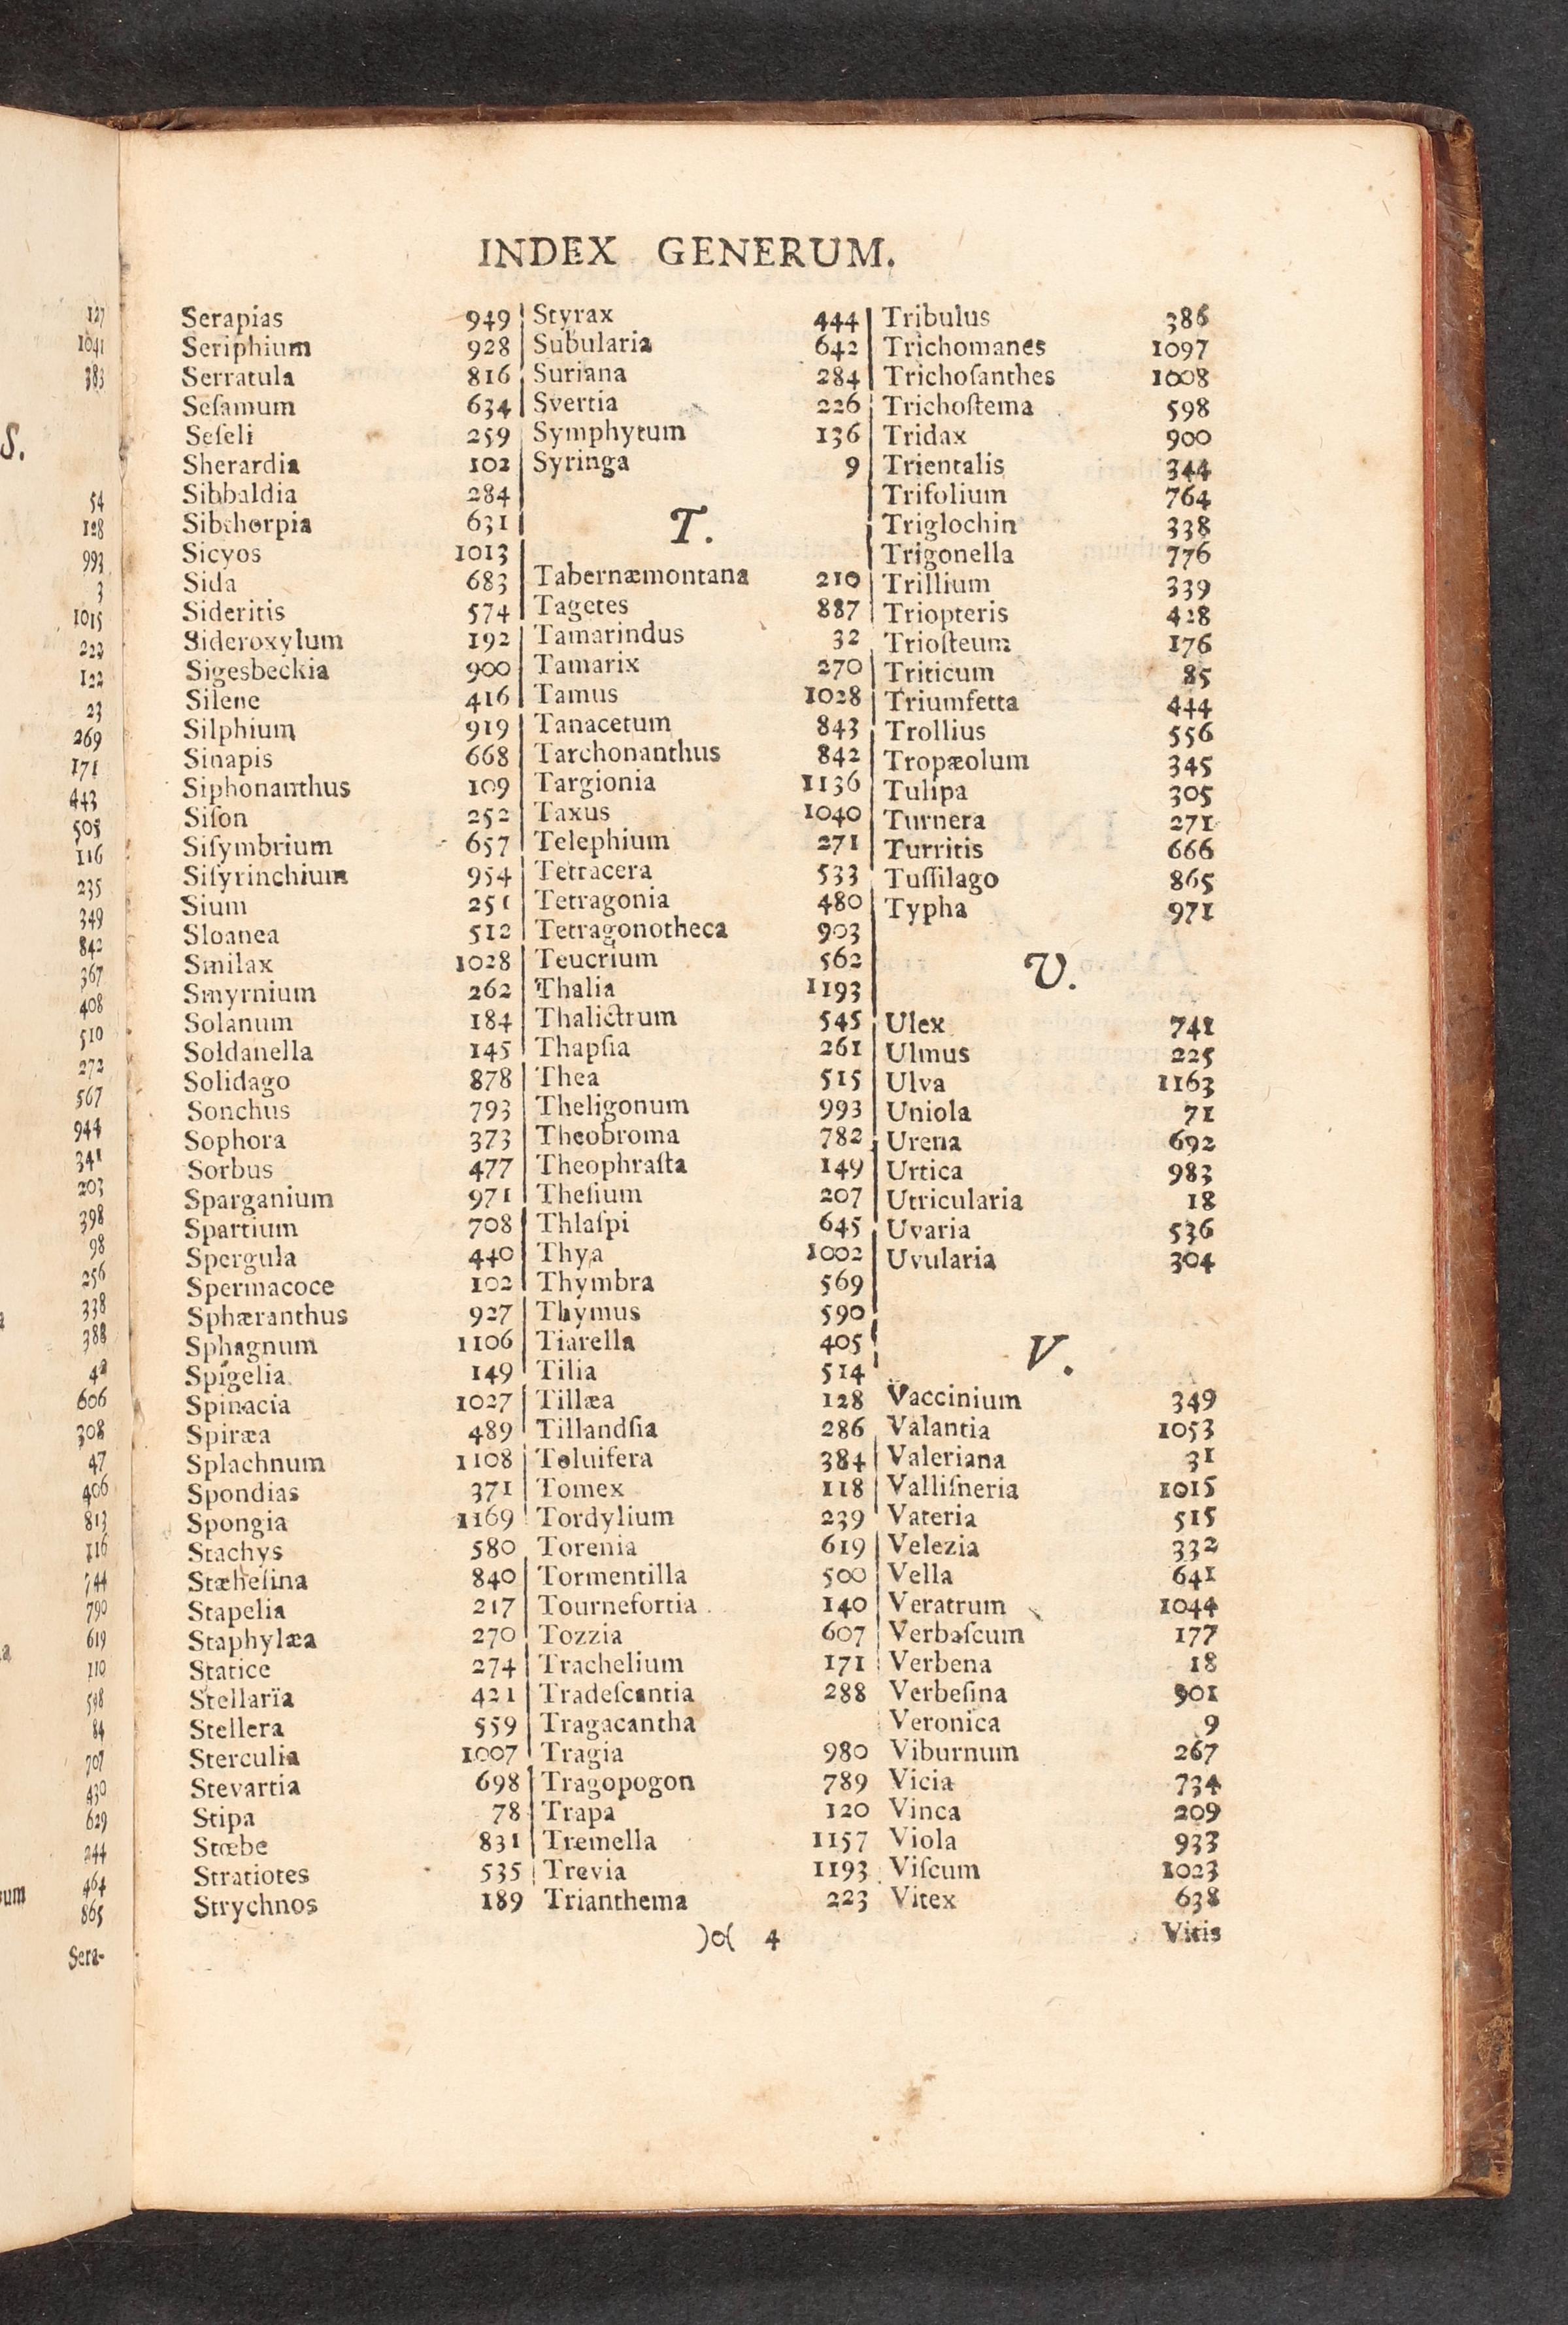 127
1041
383
S.
54
128
993
3
1015
223
122
23
269
171
443
505
116
235
349
842
367
408
510
272
567
944
341
203
398
98
256
338
388
42
606
308
47
406
813
116
744
790
619
110
598
84
707
430
629
244
464
865
Sera-
INDEX GENERUM.
Serapias 949
Seriphium 928
Serratula 816
Seſamum 634
Seſeli 259
Sherardia 102
Sibbaldia 284
Sibthorpia 631
Sicyos 1013
Sida 683
Sideritis 574
Sideroxylum 192
Sigesbeckia 900
Silene 416
Silphium 919
Sinapis 668
Siphonanthus 109
Siſon 252
Siſymbrium 657
Siſyrinchium 954
Sium 251
Sloanea 512
Smilax 1028
Smyrnium 262
Solanum 184
Soldanella 145
Solidago 878
Sonchus 793
Sophora 373
Sorbus 477
Sparganium 971
Spartium 708
Spergula 440
Spermacoce 102
Sphæranthus 927
Sphagnum 1106
Spigelia 149
Spinacia 1027
Spiræa 489
Splachnum 1108
Spondias 371
Spongia 1169
Stachys 580
Stæheſina 840
Stapelia 217
Staphylæa 270
Statice 274
Stellaria 421
Stellera 559
Sterculia 1007
Stevartia 698
Stipa 78
Stœbe 831
Stratiotes 535
Strychnos 189
Styrax 444
Subularia 642
Suriana 284
Svertia 226
Symphytum 136
Syringa 9
T.
Tabernæmontana 210
Tagetes 887
Tamarindus 32
Tamarix 270
Tamus 1028
Tanacetum 843
Tarchonanthus 842
Targionia 1136
Taxus 1040
Telephium 271
Tetracera 533
Tetragonia 480
Tetragonotheca 903
Teucrium 562
Thalia 1193
Thalictrum 545
Thapſia 261
Thea 515
Theligonum 993
Theobroma 782
Theophraſta 149
Theſium 207
Thlaſpi 645
Thya 1002
Thymbra 569
Thymus 590
Tiarella 405
Tilia 514
Tillæa 128
Tillandſia 286
Toluifera 384
Tomex 118
Tordylium 239
Torenia 619
Tormentilla 500
Tournefortia 140
Tozzia 607
Trachelium 171
Tradeſcantia 288
Tragacantha
Tragia 980
Tragopogon 789
Trapa 120
Tremella 1157
Trevia 1193
Trianthema 223
Tribulus 386
Trichomanes 1097
Trichoſanthes 1008
Trichoſtema 598
Tridax 900
Trientalis 344
Trifolium 764
Triglochin 338
Trigonella 776
Trillium 339
Triopteris 428
Trioſteum 176
Triticum 85
Triumfetta 444
Trollius 556
Tropæolum 345
Tulipa 305
Turnera 271
Turritis 666
Tuſſilago 865
Typha 971
U.
Ulex 741
Ulmus 225
Ulva 1163
Uniola 71
Urena 692
Urtica 983
Utricularia 18
Uvaria 536
Uvularia 304
V.
Vaccinium 349
Valantia 1053
Valeriana 31
Valliſneria 1015
Vateria 515
Velezia 332
Vella 641
Veratrum 1044
Verbaſcum 177
Verbena 18
Verbeſina 901
Veronica 9
Viburnum 267
Vicia 734
Vinca 209
Viola 933
Viſcum 1023
Vitex 638
)o( 4
Vitis